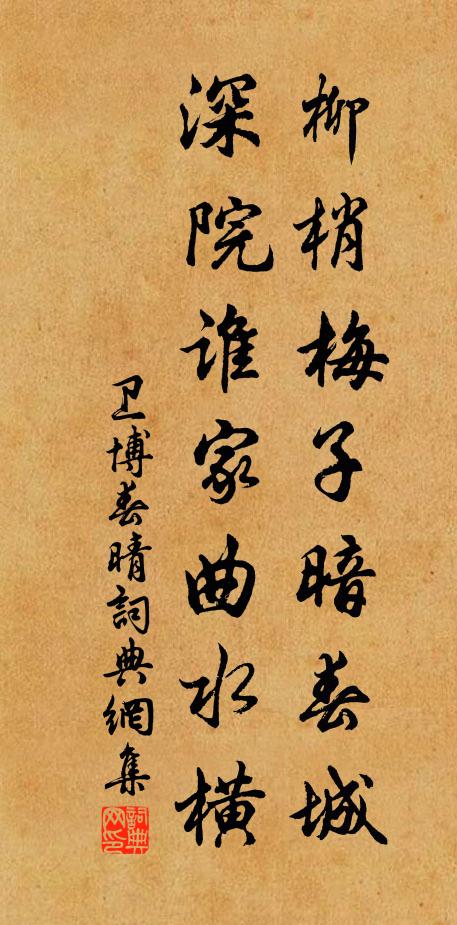 柳梢梅子暗春城
深院谁家曲水横
卫博春晴詞典網集
詞典网印